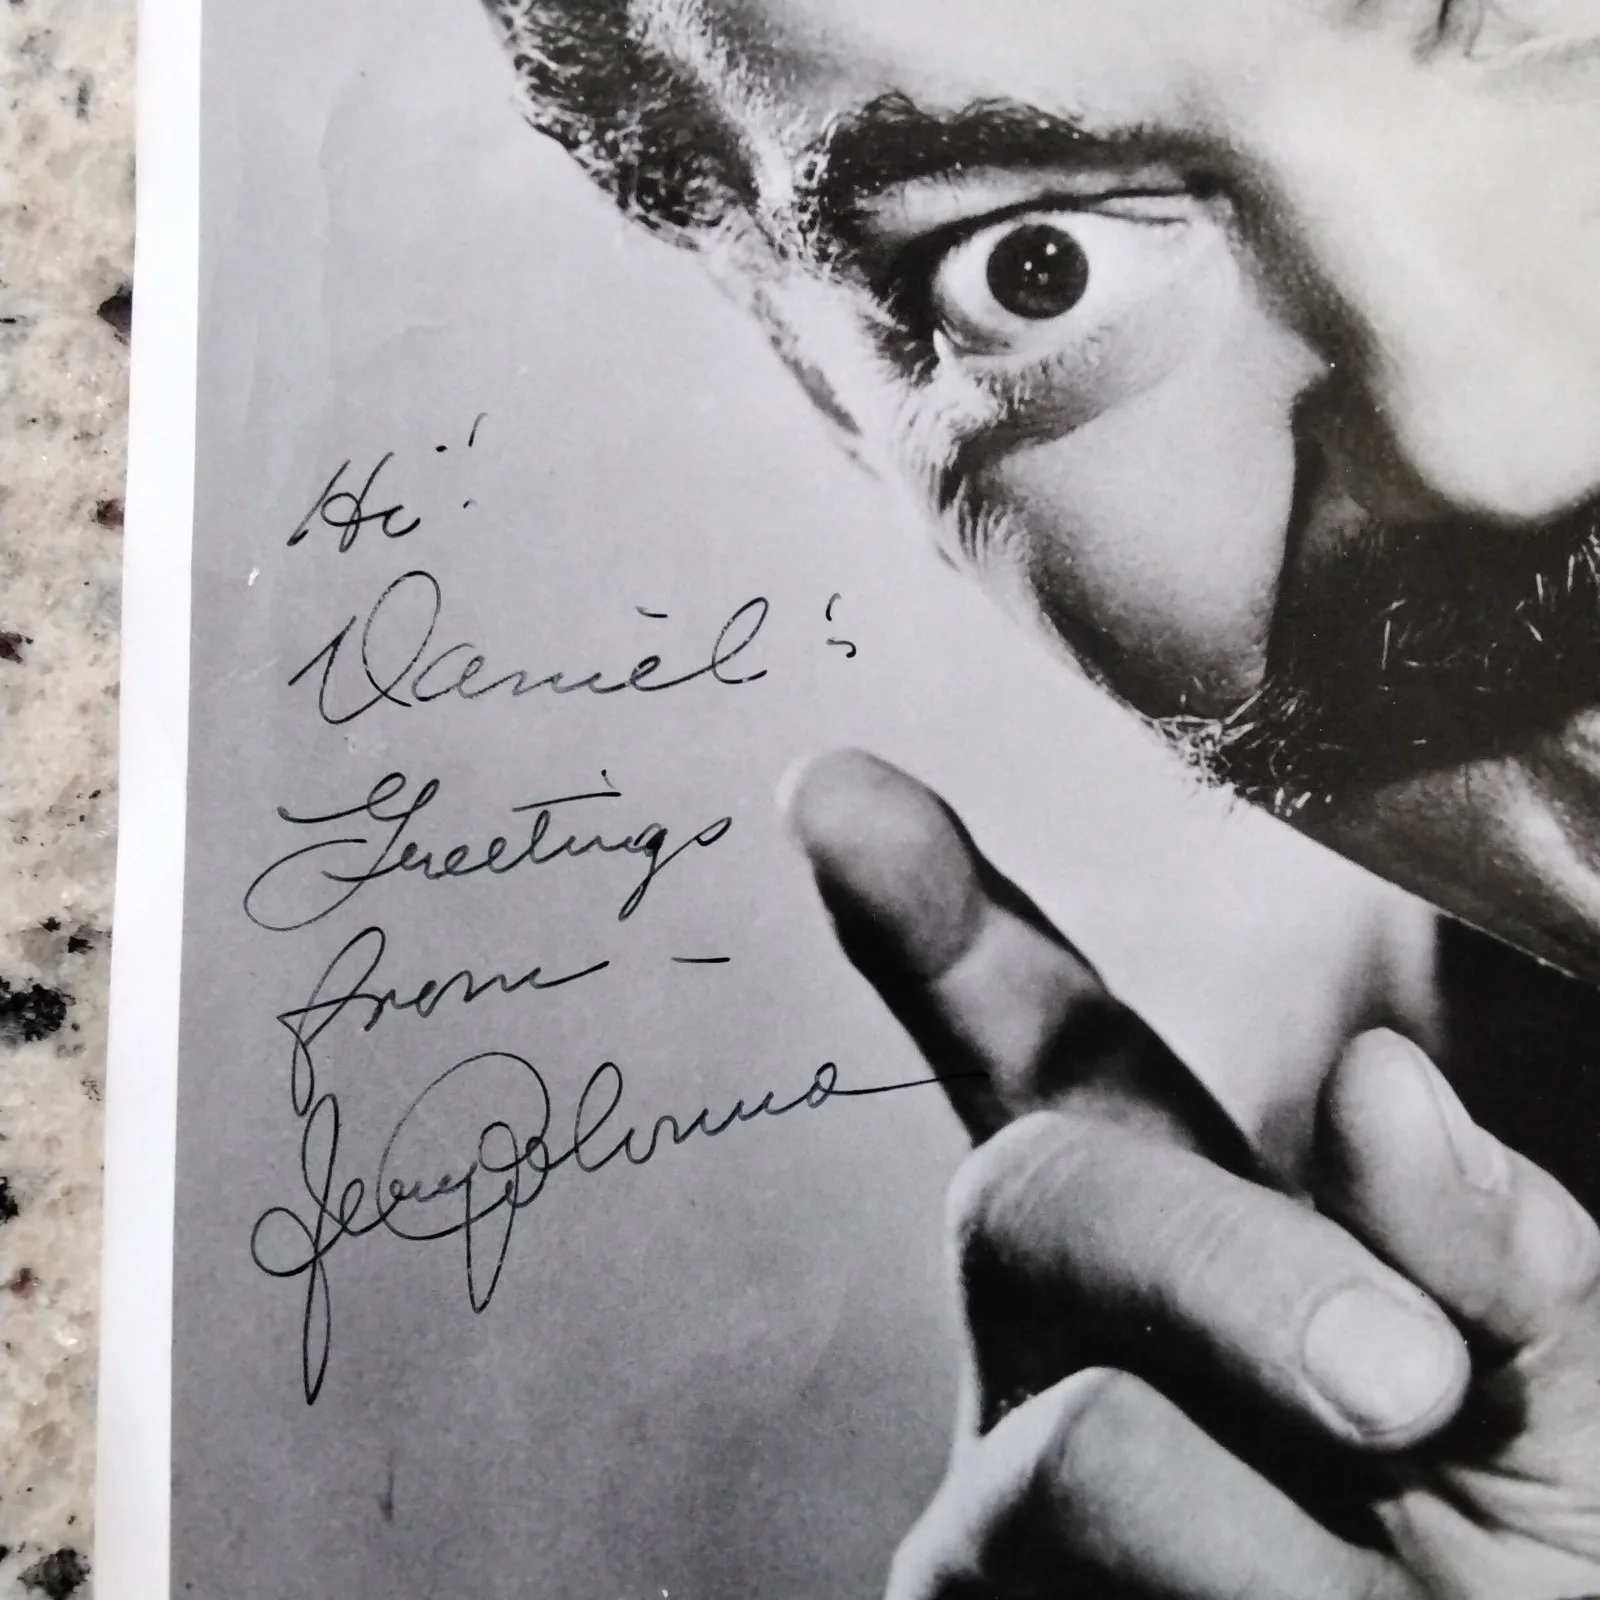 Hi!
Daniel's
Greetings
from -
Jerry Colonna